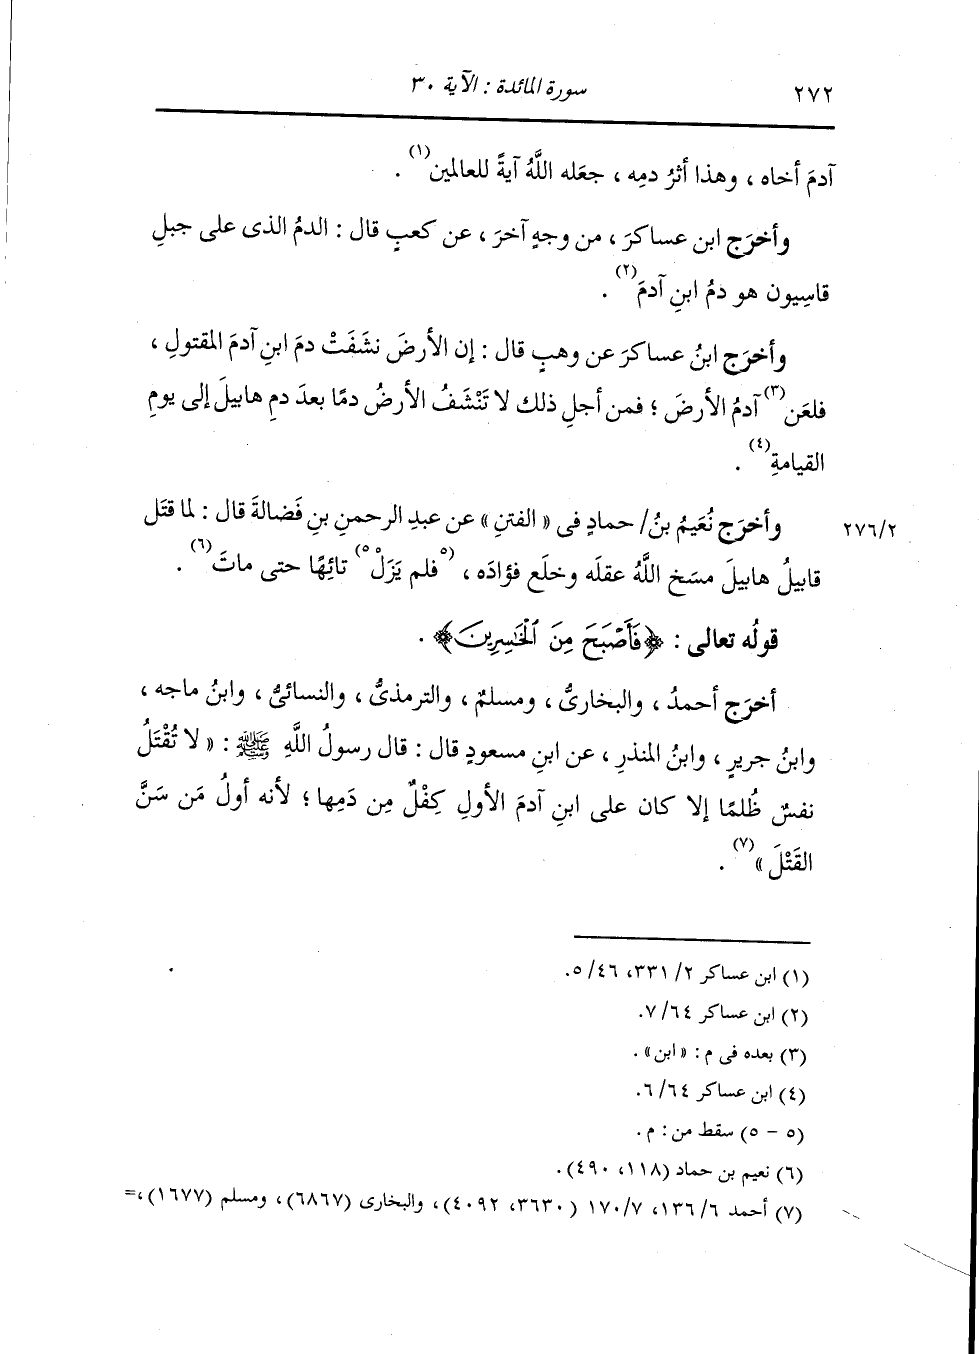 ٢٧٢ سورة المائدة : الآية ٣٠
آدمَ أخاه ، وهذا أثرُ دمِه ، جعَله اللَّهُ آيةً للعالمين(١) .
وأخرَج ابن عساكرَ ، من وجهٍ آخرَ ، عن كعبٍ قال : الدمُ الذى على جبلِ
قاسِيون هو دمُ ابنِ آدمَ(٢) .
وأخرَج ابنُ عساكرَ عن وهبٍ قال : إن الأرضَ نشَفَتْ دمَ ابنِ آدمَ المقتولِ ،
فلعَن(٣) آدمُ الأرضَ ؛ فمن أجلِ ذلك لا تَنْشَفُ الأرضُ دمًا بعدَ دمِ هابيلَ إلى يومِ
القيامةِ(٤) .
وأخرَج نُعَيمُ بنُ/ حمادٍ فى « الفتنِ » عن عبدِ الرحمنِ بنِ فَضالةَ قال : لما قتَل ٢٧٦/٢
قابيلُ هابيلَ مسَخ اللَّهُ عقلَه وخلَع فؤادَه ، (٥فلم يَزَلْ٥) تائِهًا حتى ماتَ(٦) .
قولُه تعالى : ﴿فَأَصْبَحَ مِنَ ٱلْخَٰسِرِينَ﴾ .
أخرَج أحمدُ ، والبخارىُّ ، ومسلمٌ ، والترمذىُّ ، والنسائىُّ ، وابنُ ماجه ،
وابنُ جريرٍ ، وابنُ المنذرِ ، عن ابنِ مسعودٍ قال : قال رسولُ اللَّهِ ﷺ : « لا تُقْتَلُ
نفسٌ ظُلمًا إلا كان على ابنِ آدمَ الأولِ كِفْلٌ مِن دَمِها ؛ لأنه أولُ مَن سَنَّ
القَتْلَ »(٧) .
(١) ابن عساكر ٢/ ٣٣١، ٤٦/ ٥.
(٢) ابن عساكر ٦٤/ ٧.
(٣) بعده فى م : « ابن » .
(٤) ابن عساكر ٦٤/ ٦.
(٥ - ٥) سقط من : م .
(٦) نعيم بن حماد (١١٨، ٤٩٠).
(٧) أحمد ٦/ ١٣٦، ٧/ ١٧٠ (٣٦٣٠، ٤٠٩٢)، والبخارى (٦٨٦٧)، ومسلم (١٦٧٧)،=